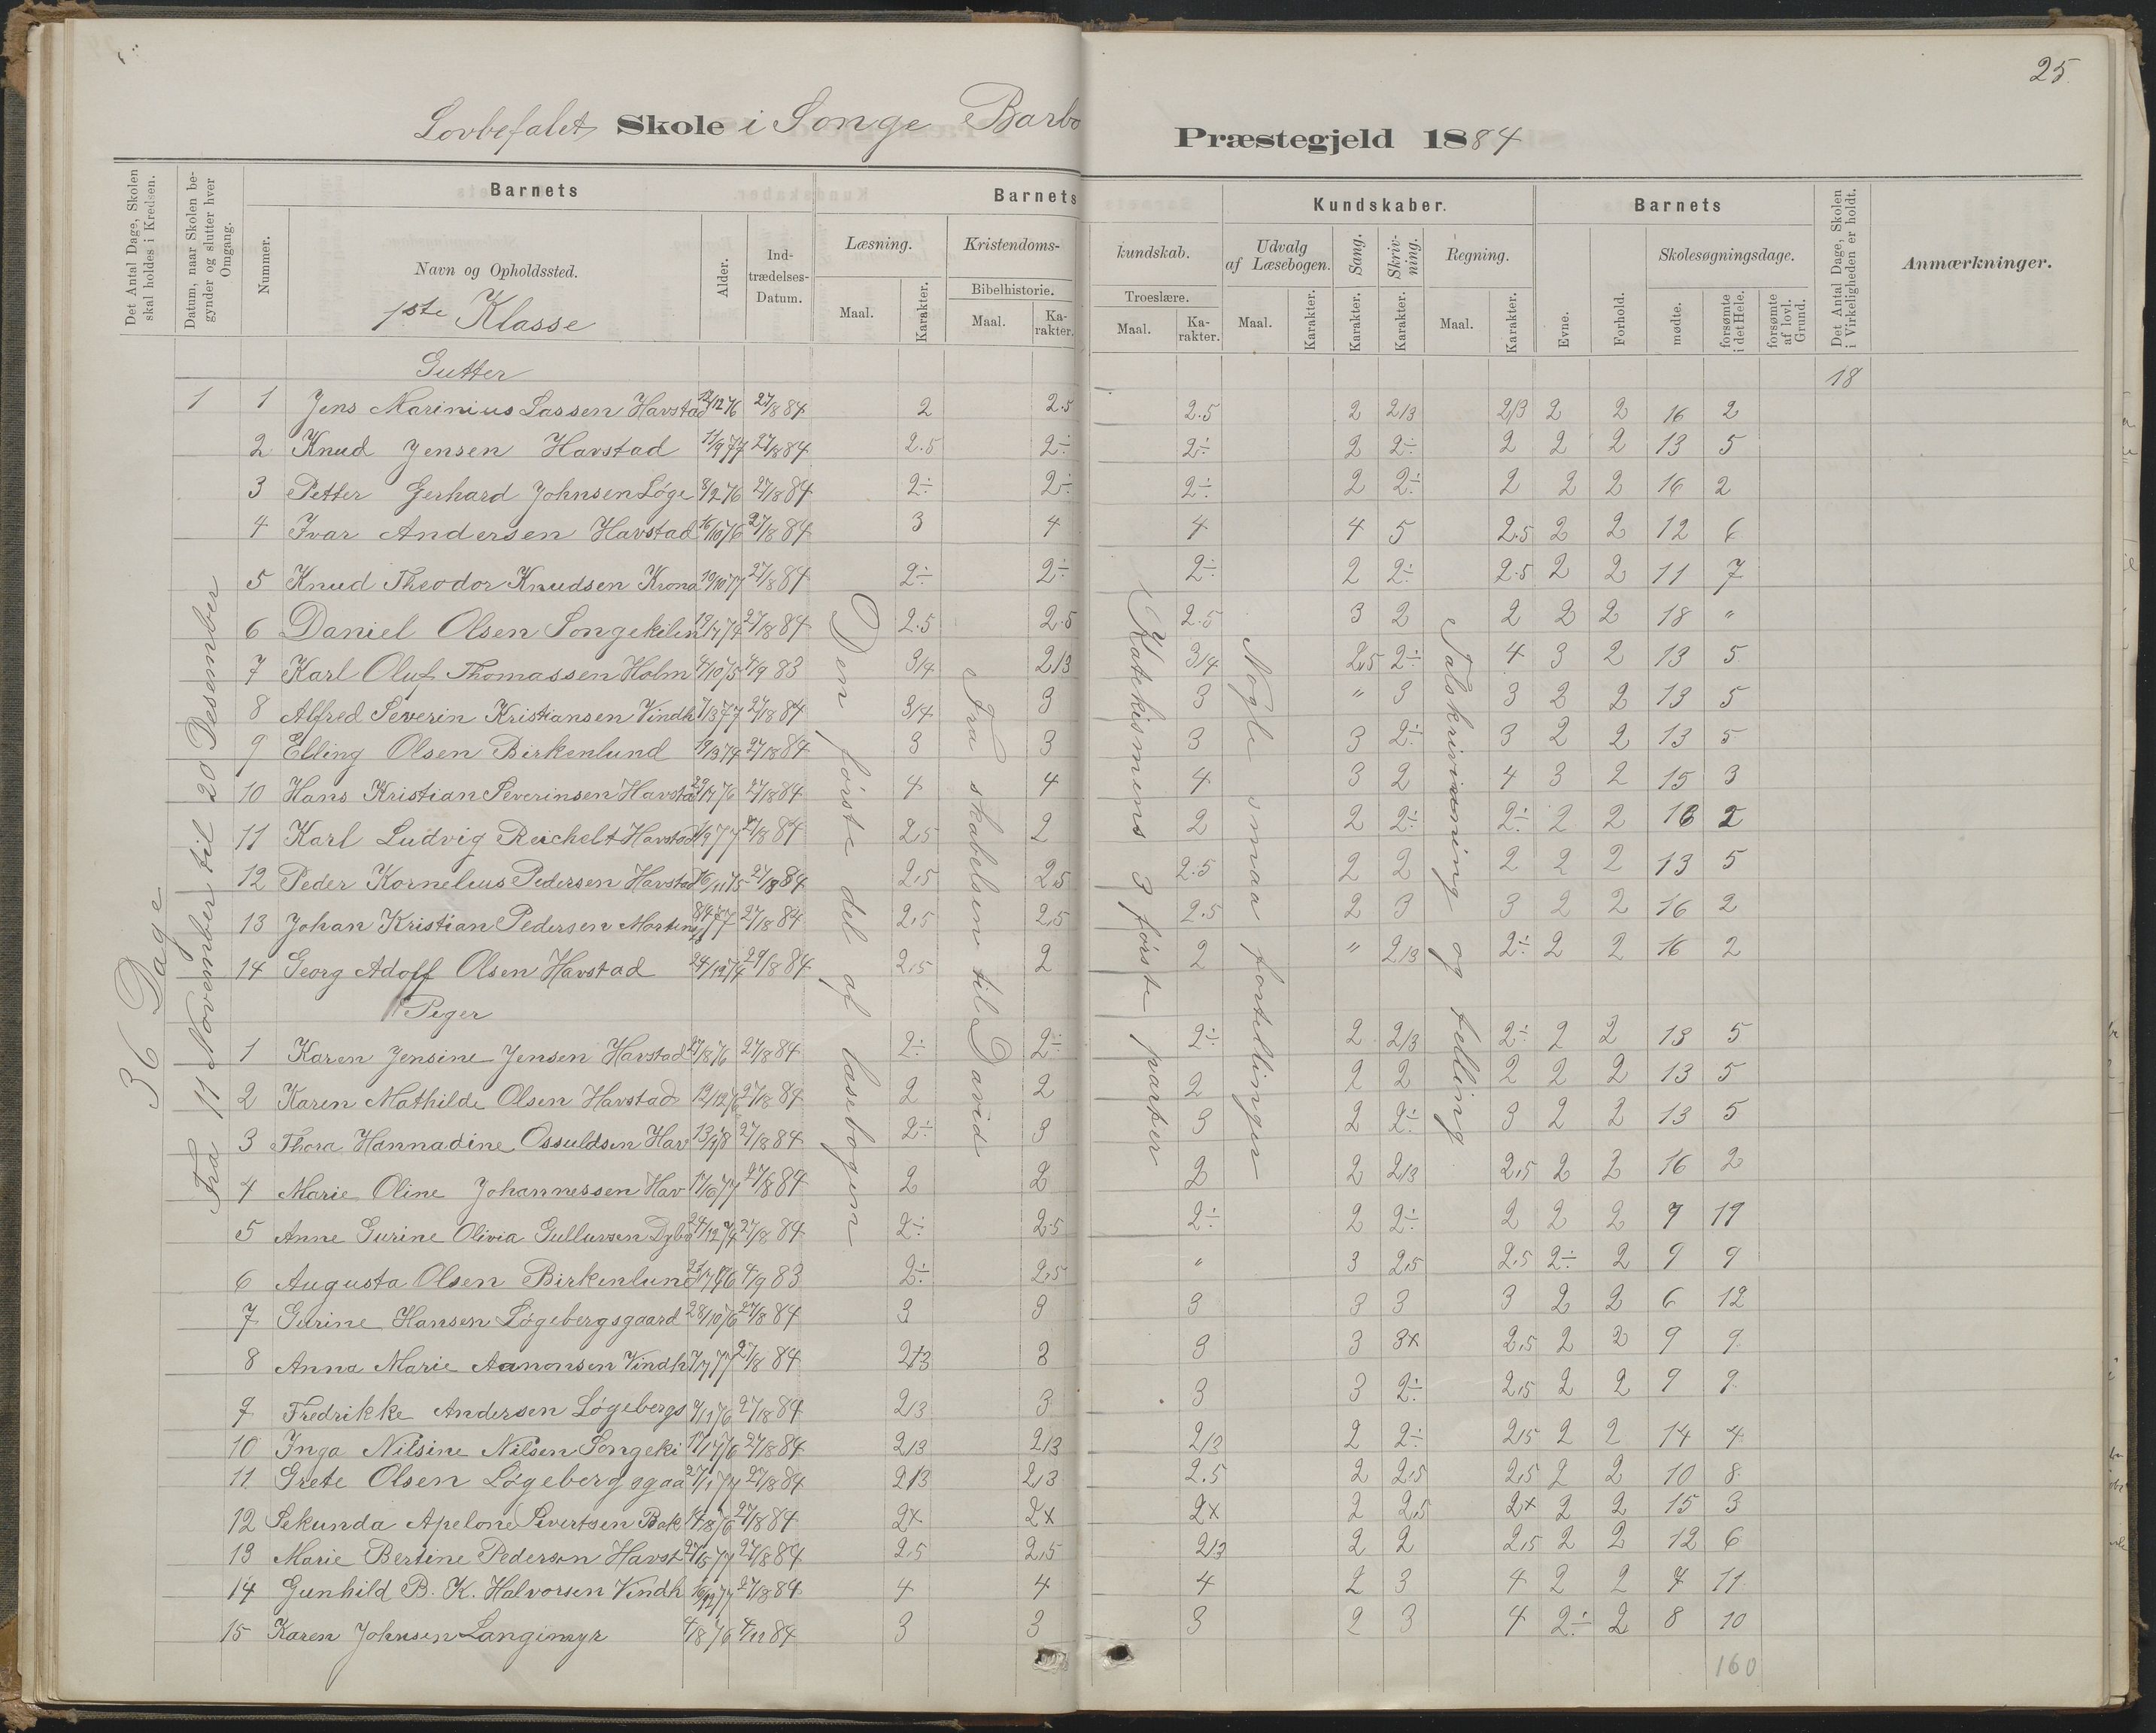 25.
Lovbefalet Skole i Songe Barbo Præstegjeld 1884
Det Antal Dage, Skolen skal holdes i Kredsen.
Datum, naar Skolen begynder og slutter hver Omgang.
Barnets
Nummer.
Navn og Opholdssted.
Alder.
Indtrædelses-Datum.
Barnets Kundskaber.
Læsning.
Maal.
Karakter.
Kristendomskundskab.
Bibelhistorie.
Maal.
Karakter.
Troeslære.
Maal.
Karakter.
Udvalg af Læsebogen.
Maal.
Karakter.
Sang.
Karakter.
Skrivning.
Karakter.
Regning.
Maal.
Karakter.
Barnets
Evne.
Forhold.
Skolesøgningsdage.
mødte.
forsømte i det Hele.
forsømte af lovl. Grund.
Det Antal Dage, Skolen i Virkeligheden er holdt.
Anmærkninger.
1ste Klasse
36 Dage
Fra 11 November til 20 Desember
Den første del af læsebogen
Fra skabelsen til David
Katekismens 3 første parter
Nogle smaa fortellinger
Talskrivning og telling
Gutter
18
1 1 Jens Marinius Lassen Havstad 12/12 76 27/8 84 2 2.5 2.5 2 2/3 2/3 2 2 16 2
2 Knud Jensen Havstad 11/9 77 27/8 84 2.5 2÷ 2÷ 2 2÷ 2 2 2 13 5
3 Petter Gerhard Johnsen Løge 8/2 76 27/8 84 2÷ 2÷ 2÷ 2 2÷ 2 2 2 16 2
4 Ivar Andersen Havstad 16/10 76 27/8 84 3 4 4 4 5 2.5 2 2 12 6
5 Knud Theodor Knudsen Krona 19/10 77 27/8 84 2÷ 2÷ 2÷ 2 2÷ 2.5 2 2 11 7
6 Daniel Olsen Songekilen 27/8 84 2.5 2.5 2.5 3 2 2 2 2 18 "
7 Karl Oluf Thomassen Holm 4/10 75 4/9 83 3/4 2/3 3/4 2,5 2÷ 4 3 2 13 5
8 Alfred Severin Kristiansen Vindh 7/3 77 27/8 84 3/4 3 3 " 3 3 2 2 13 5
9 Elling Olsen Birkenlund 19/3 74 27/8 84 3 3 3 3 2÷ 3 2 2 13 5
10 Hans Kristian Severinsen Havsta 29/7 76 27/8 84 4 4 4 3 2 4 3 2 15 3
11 Karl Ludvig Reichelt Havstad 27/8 84 2,5 2 2 2 2÷ 2÷ 2 2 16 2
12 Peder Kornelius Pedersen Havstad 16/11 75 27/8 84 2,5 2,5 2.5 2 2 2 2 2 13 5
13 Johan Kristian Pedersen 27/8 84 2,5 2,5 2.5 2 3 3 2 2 16 2
14 Georg Adolf Olsen Havstad 24/12 74 29/8 84 2,5 2 2 " 2/3 2÷ 2 2 16 2
Piger
1 Karen Jensine Jensen Havstad 27/8 76 27/8 84 2÷ 2÷ 2÷ 2 2/3 2÷ 2 2 13 5
2 Karen Mathilde Olsen Havstad 27/8 84 2 2 2 2 2 2 2 2 13 5
3 Thora Hannadine Ossuldsen Hav 27/8 84 2÷ 3 3 2 2÷ 3 2 2 13 5
4 Marie Oline Johannessen Hav 27/8 84 2 2 2 2 2/3 2,5 2 2 16 2
5 Anne Gurine Olivia Gullursen 24/12 74 27/8 84 2÷ 2.5 2÷ 2 2÷ 2 2 2 7 11
6 Augusta Olsen Birkenlund 4/9 83 2÷ 2,5 " 3 2,5 2,5 2÷ 2 9 9
7 Gurine Hansen Løgebergsgaard 28/10 76 27/8 84 3 3 3 3 3 3 2 2 6 12
8 Anna Marie Aanonsen Vindh 7/7 77 27/8 84 2/3 3 3 3 3x 2,5 2 2 9 9
9 Fredrikke Andersen Løgebergs 27/8 84 2/3 3 3 3 2÷ 2,5 2 2 9 9
10 Inga Nilsine Nilsen Songeki 27/8 84 2/3 2/3 2/3 2 2÷ 2,5 2 2 14 4
11 Grete Olsen Løgebergsgaa 27/8 84 2/3 2/3 2.5 2 2,5 2,5 2 2 10 8
12 Sekunda Apelone Sivertsen Bak 14/8 76 27/8 84 2x 2x 2x 2 2,5 2x 2 2 15 3
13 Marie Bertine Pedersen Havst 27/5 77 27/8 84 2.5 2,5 2/3 2 2 2,5 2 2 12 6
14 Gunhild B. K. Halvorsen Vindh 27/8 84 4 4 4 2 3 4 2 2 7 11
15 Karen Johnsen Langimyr 4/8 76 4/11 84 3 3 3 2 3 4 2÷ 2 8 10
160